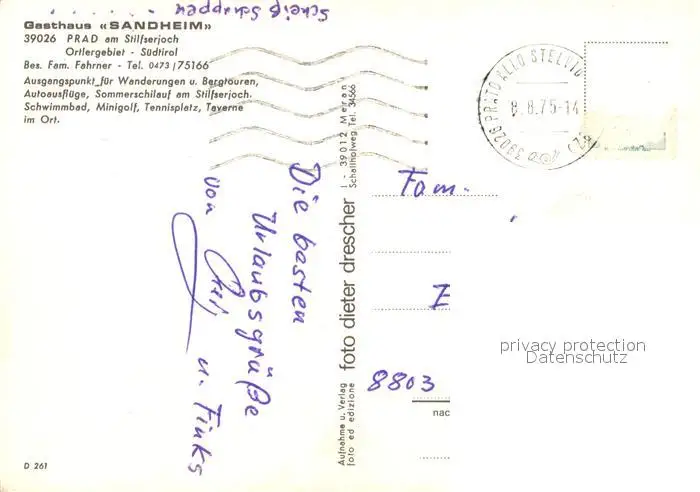 Gasthaus «SANDHEIM»
39026 PRAD am Stilfserjoch
Ortlergebiet - Südtirol
Bes. Fam. Fahrner - Tel. 0473 / 75166
Ausgangspunkt für Wanderungen u. Bergtouren,
Autoausflüge, Sommerschilauf am Stilfserjoch.
Schwimmbad, Minigolf, Tennisplatz, Taverne
im Ort.
39026 PRATO ALLO STELVIO (BZ)
8.8.75-14
Die besten
Urlaubsgrüße
von
u. Finks
Aufnahme u. Verlag
foto ed edizione
foto dieter drescher
I - 39012 Meran
Schallhofweg Tel. 34566
Fam.
8803
nac
privacy protection
Datenschutz
D 261